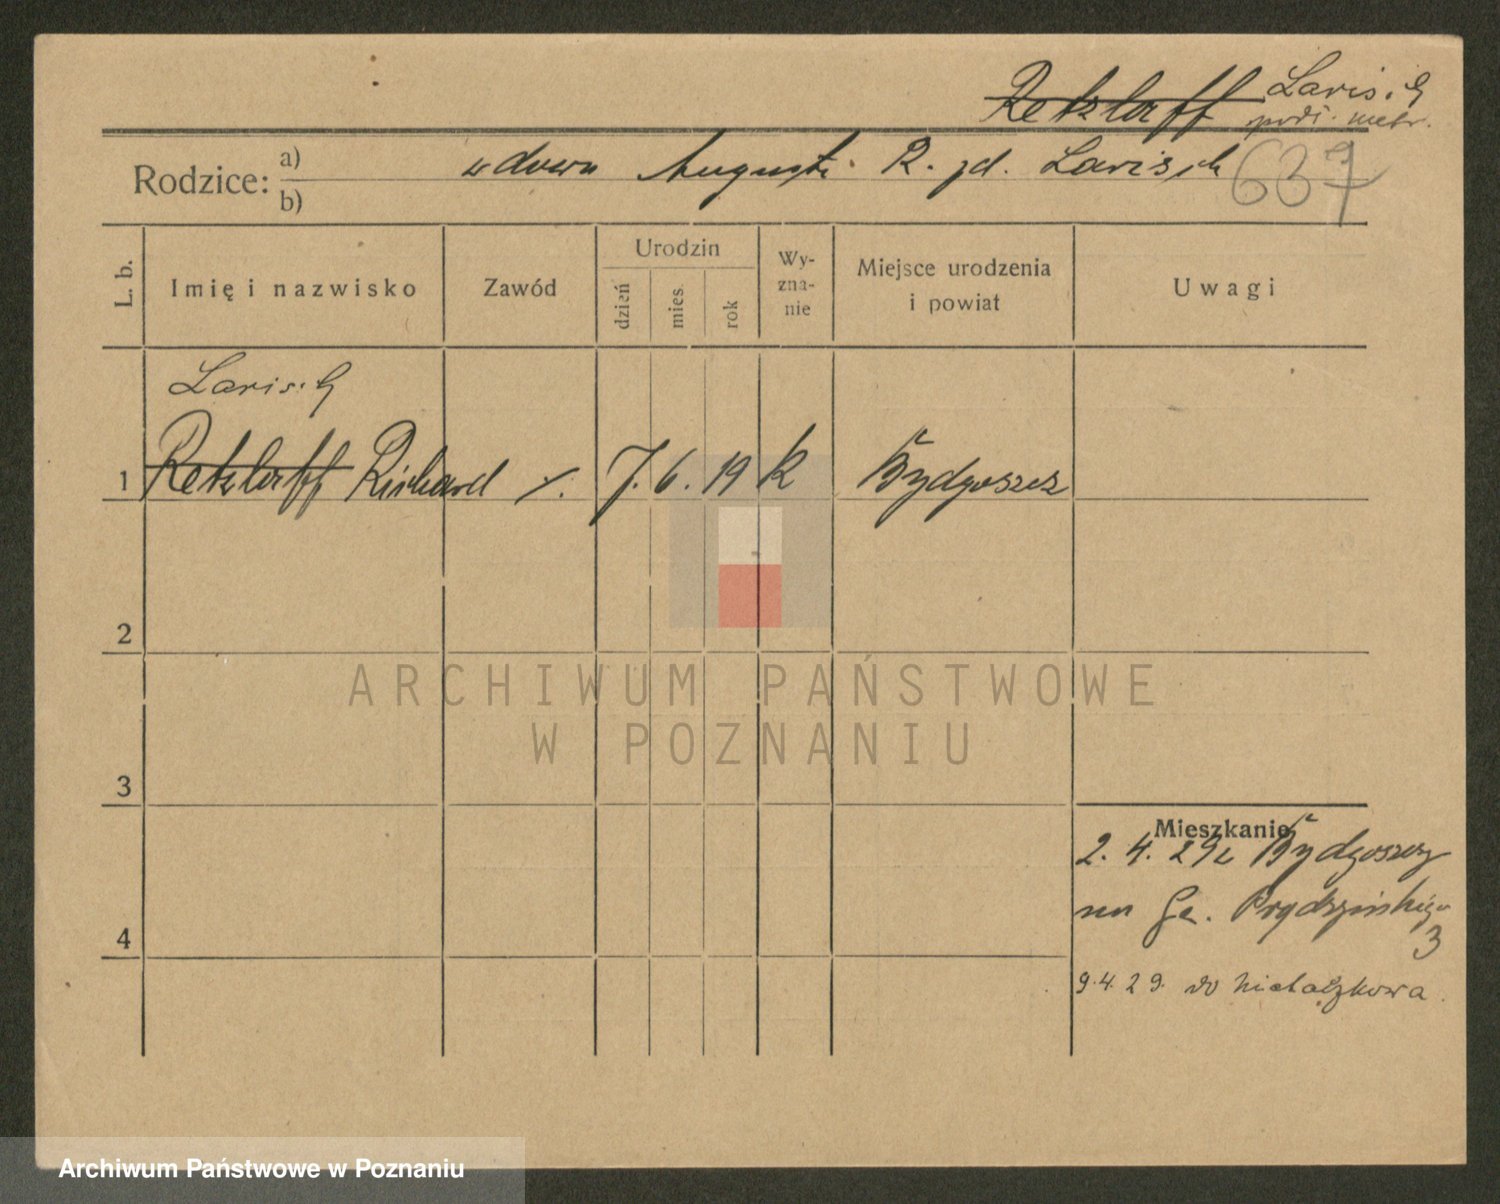 Retzlaff Larisch
podł. metr.
Rodzice: a) wdowa Augusta R. zd. Larisch 637
b)
L. b. Imię i nazwisko Zawód Urodzin dzień mies. rok Wy-zna-nie Miejsce urodzenia i powiat Uwagi
Larisch
1 Retzlaff Richard /. 7. 6. 19 k Bydgoszcz
2
ARCHIWUM PAŃSTWOWE
W POZNANIU
3
Mieszkanie
2. 4. 29 z Bydgoszczy
na Ge. Prądzyńskiego
3
4
9. 4. 29. do Michałkowa
Archiwum Państwowe w Poznaniu